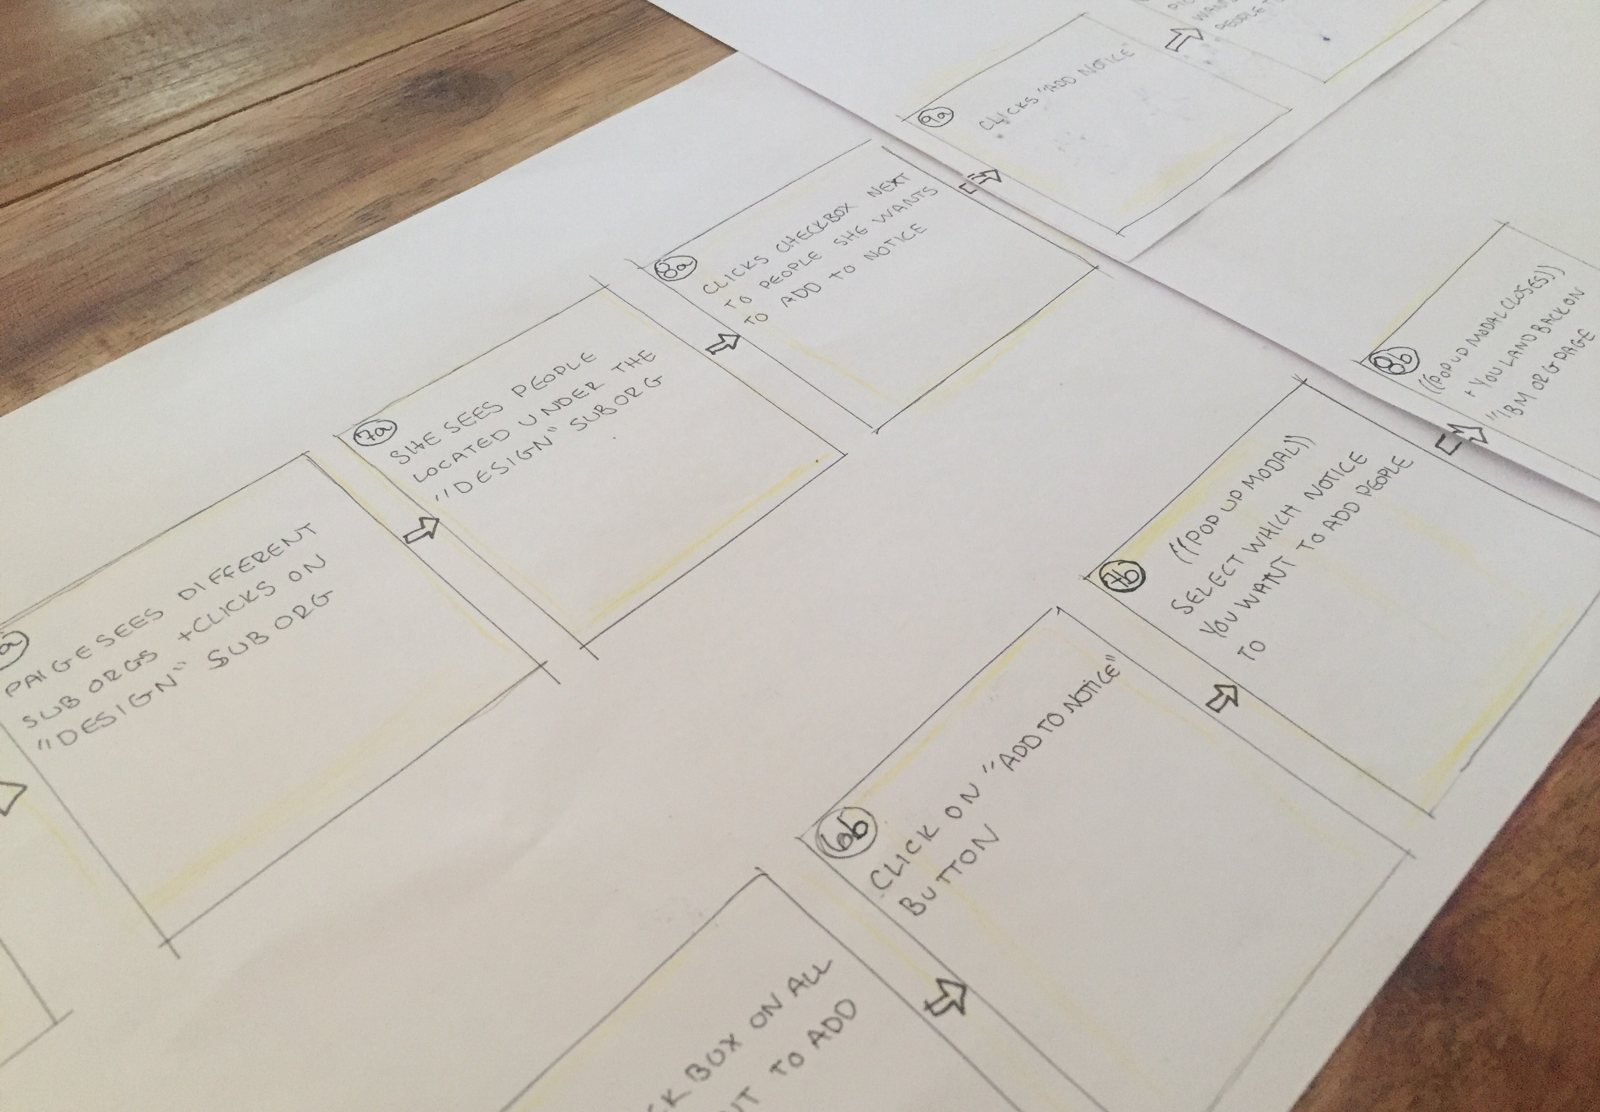 a
PAIGE SEES DIFFERENT
SUB ORGS + CLICKS ON
"DESIGN" SUB ORG
7a
SHE SEES PEOPLE
LOCATED UNDER THE
"DESIGN" SUB ORG
8a
CLICKS CHECKBOX NEXT
TO PEOPLE SHE WANTS
TO ADD TO NOTICE
9a
CLICKS "ADD NOTICE"
WAN
PEOPLE T
CK BOX ON ALL
NT TO ADD
6b
CLICK ON "ADD TO NOTICE"
BUTTON
7b
((POP UP MODAL))
SELECT WHICH NOTICE
YOU WANT TO ADD PEOPLE
TO
8b
((POP UP MODAL CLOSES))
+ YOU LAND BACK ON
"IBM ORG PAGE